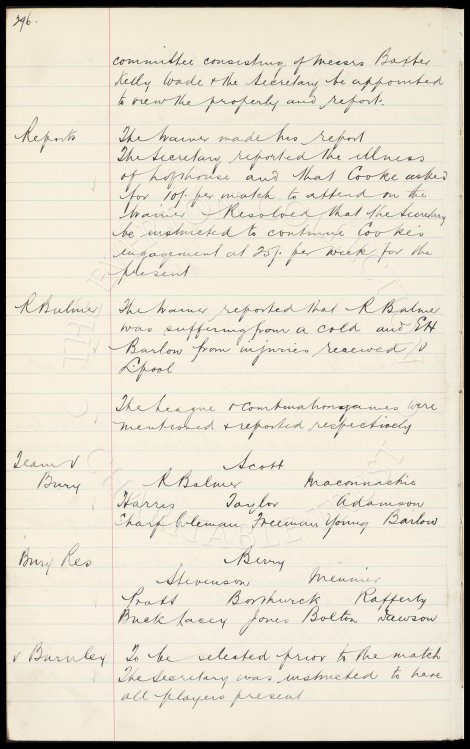 296.
committee consisting of Messrs Baxter
Kelly Wade & the Secretary be appointed
to view the property and report.
Reports
The Trainer made his report
The Secretary reported the illness
of Lofthouse and that Cooke asked
for 10/- per match to attend on the
Trainer & Resolved that the Secretary
be instructed to continue Cooke's
engagement at 25/- per week for the
present
R Balmer
The Trainer reported that R Balmer
was suffering from a cold and
Barlow from injuries received v
L'pool
The League & Combination games were
mentioned & reported respectively
Team v
Bury
Scott
R Balmer Maconnachie
Harris Taylor Adamson
Sharp Coleman Freeman Young Barlow
Bury Res
Berry
Stevenson Meunier
Pratt Borthwick Rafferty
Buck Lacey Jones Bolton Dawson
v Burnley
To be selected prior to the match
The Secretary was instructed to have
all players present